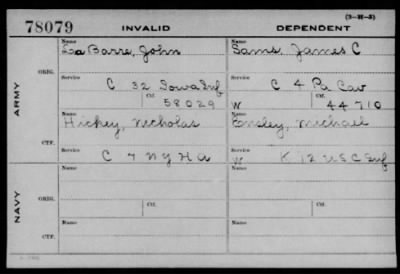 (3-H-5)
78079 INVALID DEPENDENT
Name Name
La Barre, John Sams, James C
ORIG. Service Service
C 32 Iowa Inf C 4 Pa Cav
Ctf. Ctf.
58029 W 44710
ARMY
Name Name
Hickey, Nicholas Ensley, Michael
CTF. Service Service
C 7 N Y H A W K 12 U S C Inf
Name Name
ORIG. Service Ctf. Service Ctf.
NAVY
Name Name
CTF. Service Service